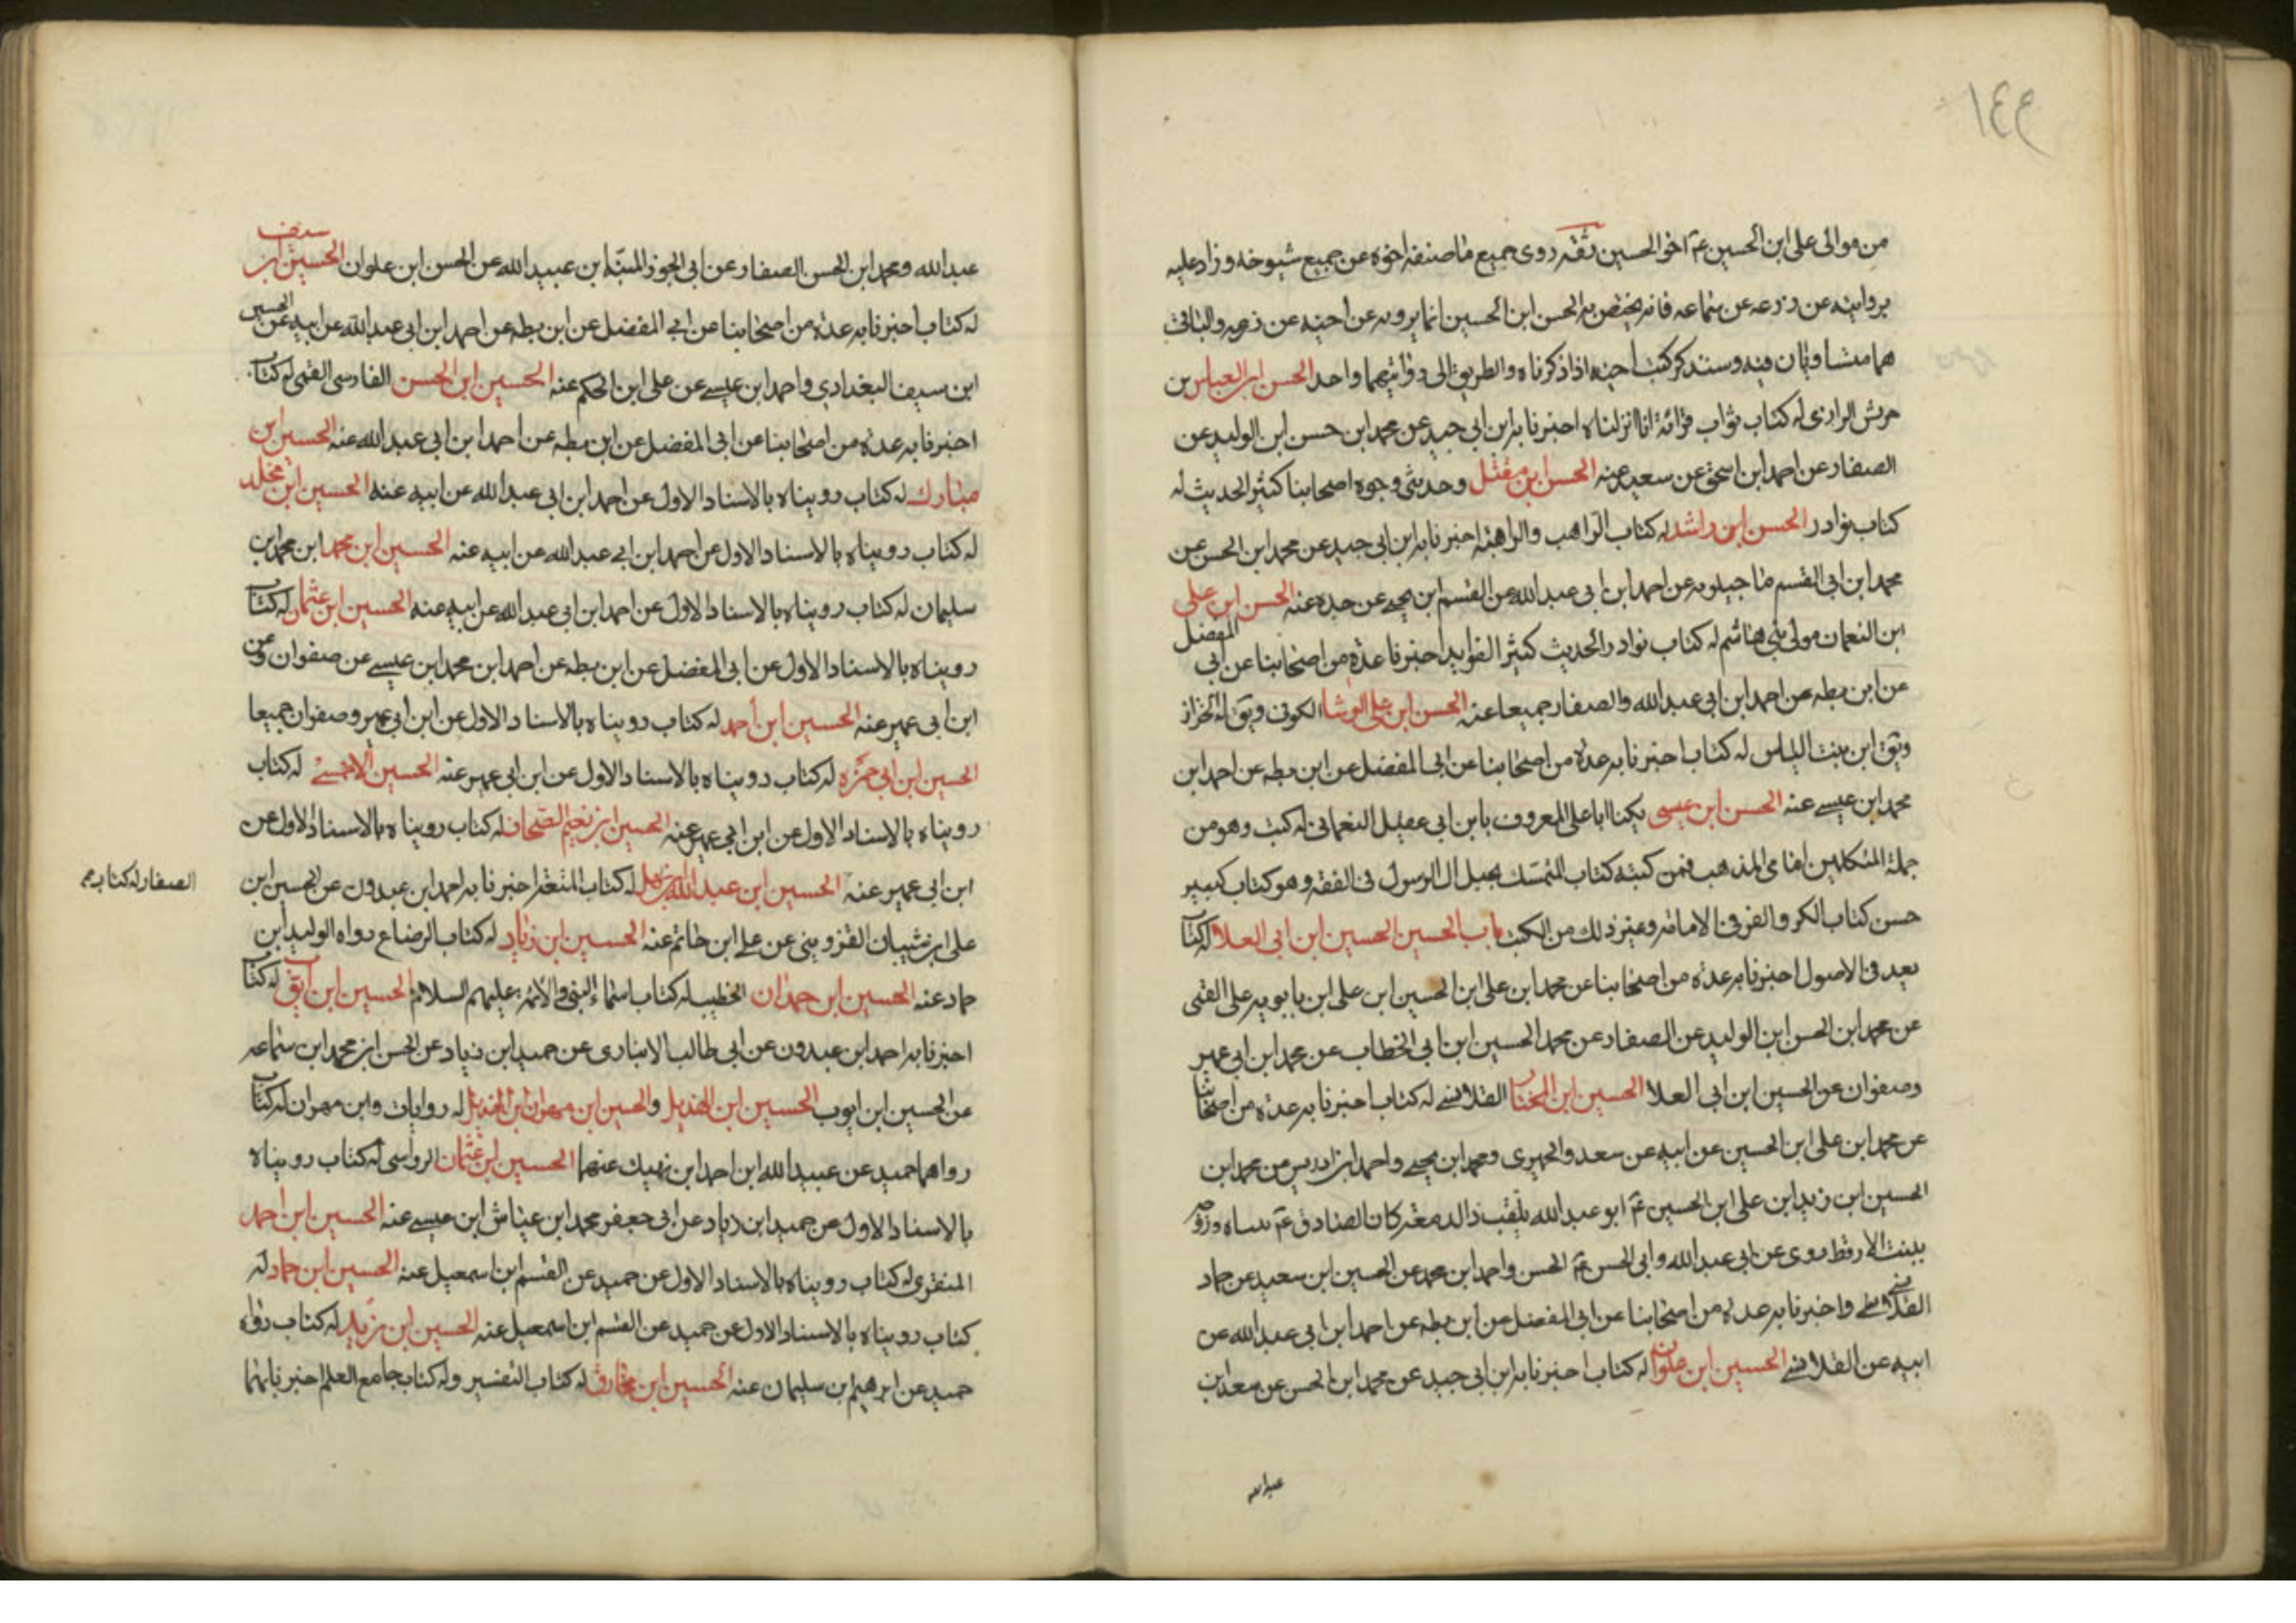 ١٤٣
من موالى على ابن الحسين عم اخو الحسين ثقه روى جميع ما صنفه اخوه عن جميع شيوخه وزاد عليه
بروايته عن زرعه عن سماعه فانه يختص به الحسن ابن الحسين انما يرويه عن اخيه عن زرعه والباقى
هما متساويان فيه وسنذكر كتب اخيه اذا ذكرناه والطريق الى رواتيهما واحد الحسن ابن العباس بن
حرش الرازى له كتاب ثواب قرائة انا انزلناه اخبرنا به ابن ابى جيد عن محمد ابن حسن ابن الوليد عن
الصفار عن احمد ابن اسحق عن سعيد عنه الحسن ابن مقتل وحدثى وجوه اصحابنا كثير الحديث له
كتاب نوادر الحسن ابن راشد له كتاب الراهب والراهبه اخبرنا به ابن ابى جيد عن محمد ابن الحسن عن
محمد ابن ابى القسم ماجيلويه عن احمد ابن ابى عبد الله عن القسم ابن يحيى عن جده عنه الحسن ابن على
ابن النعمان مولى بنى هاشم له كتاب نوادر الحديث كثير الفوايد اخبرنا عدة من اصحابنا عن ابى المفضل
عن ابن بطه عن احمد ابن ابى عبد الله والصفار جميعا عنه الحسن ابن على الوشا الكوفى ويق له الخزاز
ويق ابن بنت الياس له كتاب اخبرنا به عدة من اصحابنا عن ابى المفضل عن ابن بطه عن احمد ابن
محمد ابن عيسى عنه الحسن ابن عيسى يكنا ابا على المعروف بابن ابى عقيل النعمانى له كتب وهو من
جملة المتكلمين امامى المذهب فمن كتبه كتاب التمسك بحبل ال الرسول فى الفقه وهو كتاب كبير
حسن كتاب الكر والفر فى الامامة وغير ذلك من الكتب باب الحسين الحسين ابن ابى العلا له كتاب
يعد فى الاصول اخبرنا به عدة من اصحابنا عن محمد ابن على ابن الحسين ابن على ابن بابويه على القمى
عن محمد ابن الحسن ابن الوليد عن الصفار عن محمد الحسين ابن ابى الخطاب عن محمد ابن ابى عمير
وصفوان عن الحسين ابن ابى العلا الحسين ابن المختار القلانسى له كتاب اخبرنا به عدة من اصحابنا
عن محمد ابن على ابن الحسين عن ابيه عن سعد والحميرى ومحمد ابن يحيى واحمد ابن ادريس عن محمد ابن
الحسين ابن زيد ابن على ابن الحسين عم ابو عبد الله يلقب ذا الدمعة كان الصادق عم تبناه وزوجه
ببنت الارقط روى عن ابى عبد الله وابى الحسن عم الحسن واحمد ابن محمد عن الحسين ابن سعيد عن حماد
القلانسى واخبرنا به عدة من اصحابنا عن ابى المفضل عن ابن بطه عن احمد ابن ابى عبد الله عن
ابيه عن القلانسى الحسين ابن علوان له كتاب اخبرنا به ابن ابى جيد عن محمد ابن الحسن عن سعد ابن
عبد الله
عبد الله ومحمد ابن الحسن الصفار عن ابى الجوز المنبه ابن عبيد الله عن الحسن ابن علوان الحسين ابن سيف
له كتاب اخبرنا به عدة من اصحابنا عن ابى المفضل عن ابن بطه عن احمد ابن ابى عبد الله عن ابيه عن الحسين
ابن سيف البغدادي واحمد ابن عيسى عن على ابن الحكم عنه الحسين ابن الحسن الفارسى القمى له كتاب
اخبرنا به عدة من اصحابنا عن ابى المفضل عن ابن بطه عن احمد ابن ابى عبد الله عنه الحسين ابن
مبارك له كتاب رويناه بالاسناد الاول عن احمد ابن ابى عبد الله عن ابيه عنه الحسين ابن مخلد
له كتاب رويناه بالاسناد الاول عن احمد ابن ابى عبد الله عن ابيه عنه الحسين ابن محمد ابن محمد ابن
سليمان له كتاب رويناه بالاسناد الاول عن احمد ابن ابى عبد الله عن ابيه عنه الحسين ابن عثمان له كتاب
رويناه بالاسناد الاول عن ابى المفضل عن ابن بطه عن احمد ابن محمد ابن عيسى عن صفوان وعن
ابن ابى عمير عنه الحسين ابن أحمد له كتاب رويناه بالاسناد الاول عن ابن ابى عمير وصفوان جميعا
الحسين ابن ابى حمزه له كتاب رويناه بالاسناد الاول عن ابن ابى عمير عنه الحسين الاحمسى له كتاب
رويناه بالاسناد الاول عن ابن ابى عمير عنه الحسين ابن نعيم الصحاف له كتاب رويناه بالاسناد الاول عن
ابن ابى عمير عنه الحسين ابن عبد الله له كتاب المتعه اخبرنا به احمد ابن عبدون عن الحسين ابن
الصفار له كتاب
على ابن شيبان القزوينى عن على ابن حاتم عنه الحسين ابن زياد له كتاب الرضاع رواه الوليد ابن
حماد عنه الحسين ابن حمدان الخطيب له كتاب اسماء النبى والأئمه عليهم السلام الحسين ابن ايوب له كتاب
اخبرنا به احمد ابن عبدون عن ابى طالب الانبارى عن حميد ابن زياد عن الحسن ابن محمد ابن سماعه
عن الحسين ابن ايوب الحسين ابن الهذيل والحسين ابن مهران ابن الهذيل له روايات وابن مهران له كتاب
رواهما حميد عن عبيد الله ابن احمد ابن نهيك عنهما الحسين ابن عثمان الرواسى له كتاب رويناه
بالاسناد الاول عن حميد ابن زياد عن ابى جعفر محمد ابن عياش ابن عيسى عنه الحسين ابن احمد
المنقرى له كتاب رويناه بالاسناد الاول عن حميد عن القسم ابن اسمعيل عنه الحسين ابن حماد له
كتاب رويناه بالاسناد الاول عن حميد عن القسم ابن اسمعيل عنه الحسين ابن زيد له كتاب رواه
حميد عن ابرهيم ابن سليمان عنه الحسين ابن مخارق له كتاب التفسير وله كتاب جامع العلم اخبرنا بهما